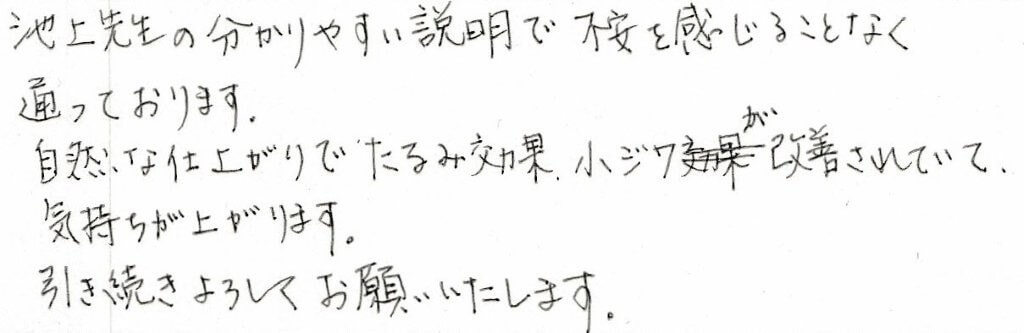 池上先生の分かりやすい説明で不安を感じることなく
通っております。
自然な仕上がりでたるみ効果、小ジワが改善されていて、
気持ちが上がります。
引き続きよろしくお願いいたします。